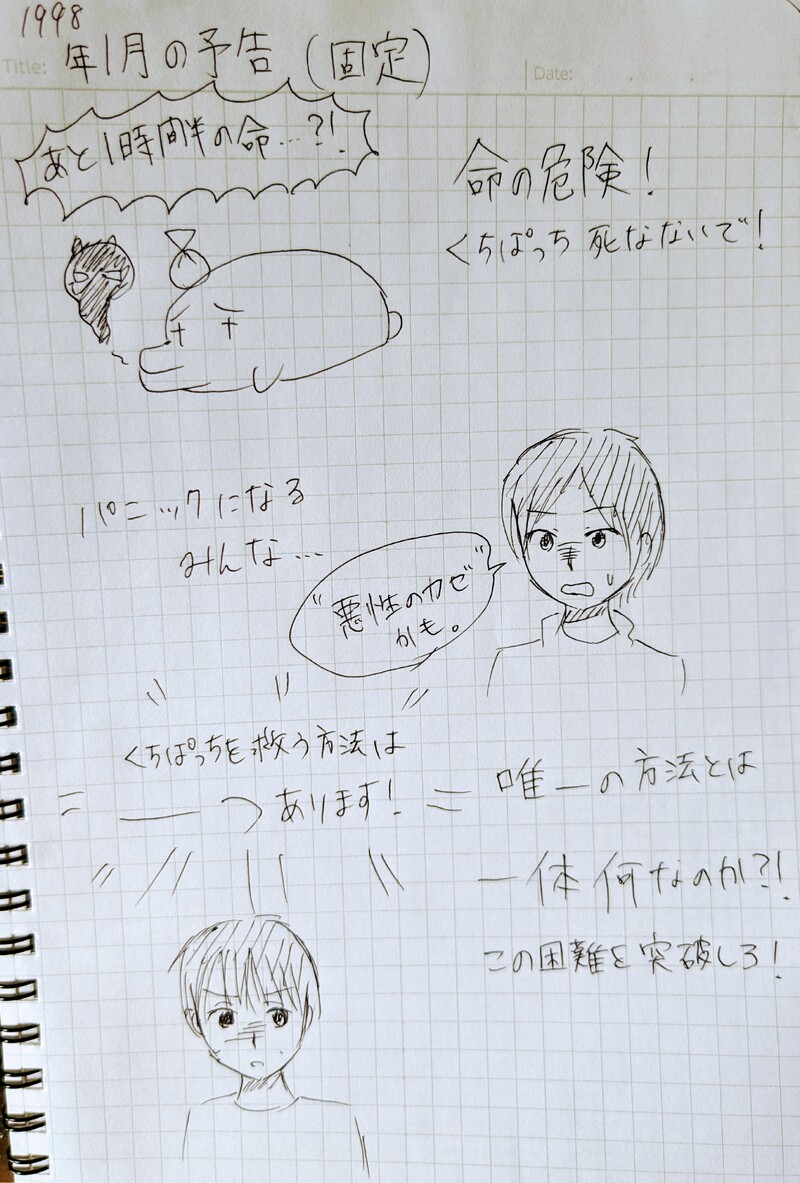 1998
年1月の予告(固定)
Title:
Date:
あと1時間半の命…?!
命の危険!
くちぱっち 死なないで!
パニックになる
みんな…
"悪性のカゼ"
かも。
くちぱっちを救う方法は
一つあります!
唯一の方法とは
一体何なのか?!
この困難を突破しろ!